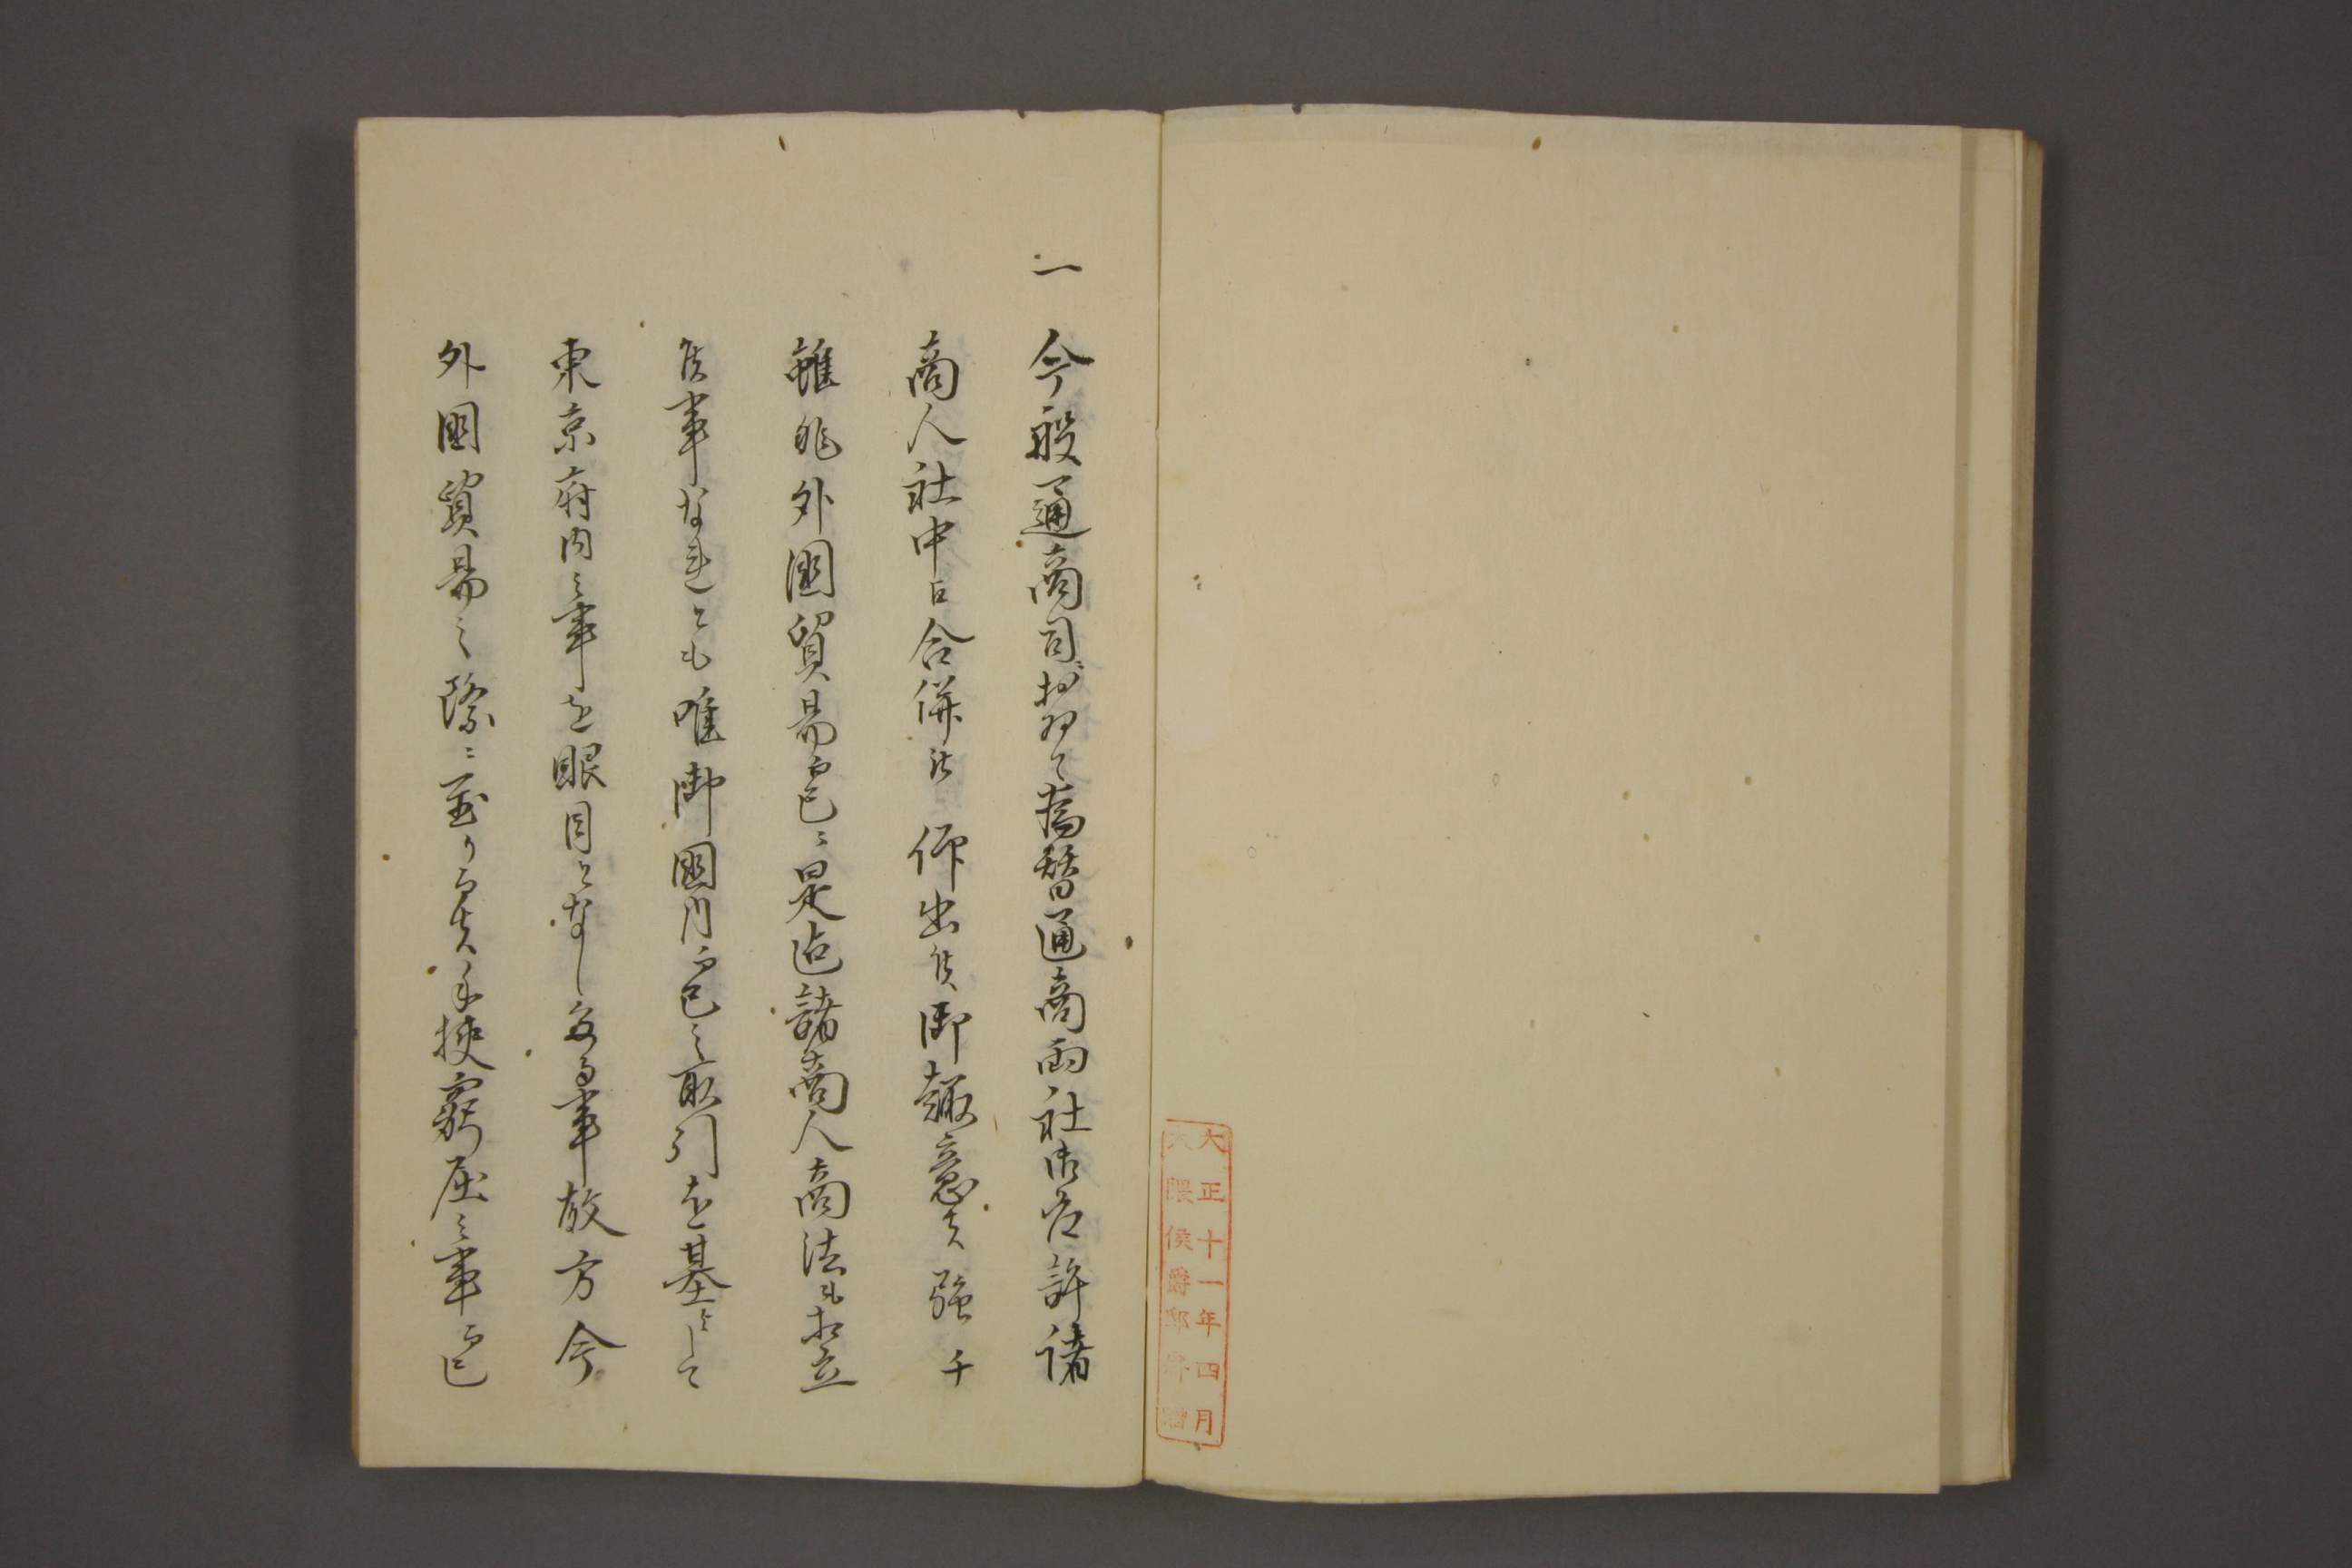 大正十一年四月
大隈侯爵邸寄贈
一 今般通商司おゐて為替通商両社御取許諸
商人社中江合併被 仰出候御趣意者強チ
雖非外国貿易而已ニ是迄諸商人商法も相立
候事なれとも唯御国内而已之取引を基として
東京府内之事を眼目となし候事故方今
外国貿易之際ニ至り而者手挟窮屈之事而已